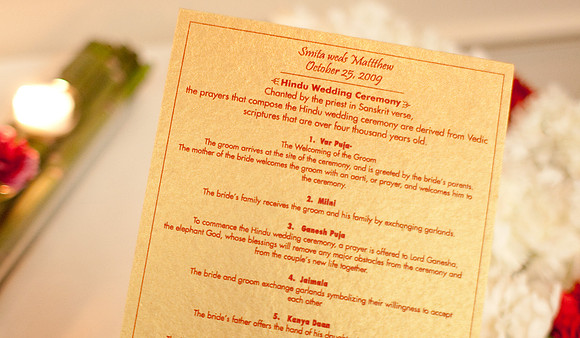 Smita weds Matthew
October 25, 2009
Hindu Wedding Ceremony
Chanted by the priest in Sanskrit verse,
the prayers that compose the Hindu wedding ceremony are derived from Vedic
scriptures that are over four thousand years old.
1. Var Puja-
The Welcoming of the Groom
The groom arrives at the site of the ceremony, and is greeted by the bride's parents.
The mother of the bride welcomes the groom with an aarti, or prayer, and welcomes him to
the ceremony.
2. Milni
The bride's family receives the groom and his family by exchanging garlands.
3. Ganesh Puja
To commence the Hindu wedding ceremony, a prayer is offered to Lord Ganesha,
the elephant God, whose blessings will remove any major obstacles from the ceremony and
from the couple's new life together.
4. Jaimala
The bride and groom exchange garlands symbolizing their willingness to accept
each other
5. Kanya Daan
The bride's father offers the hand of his